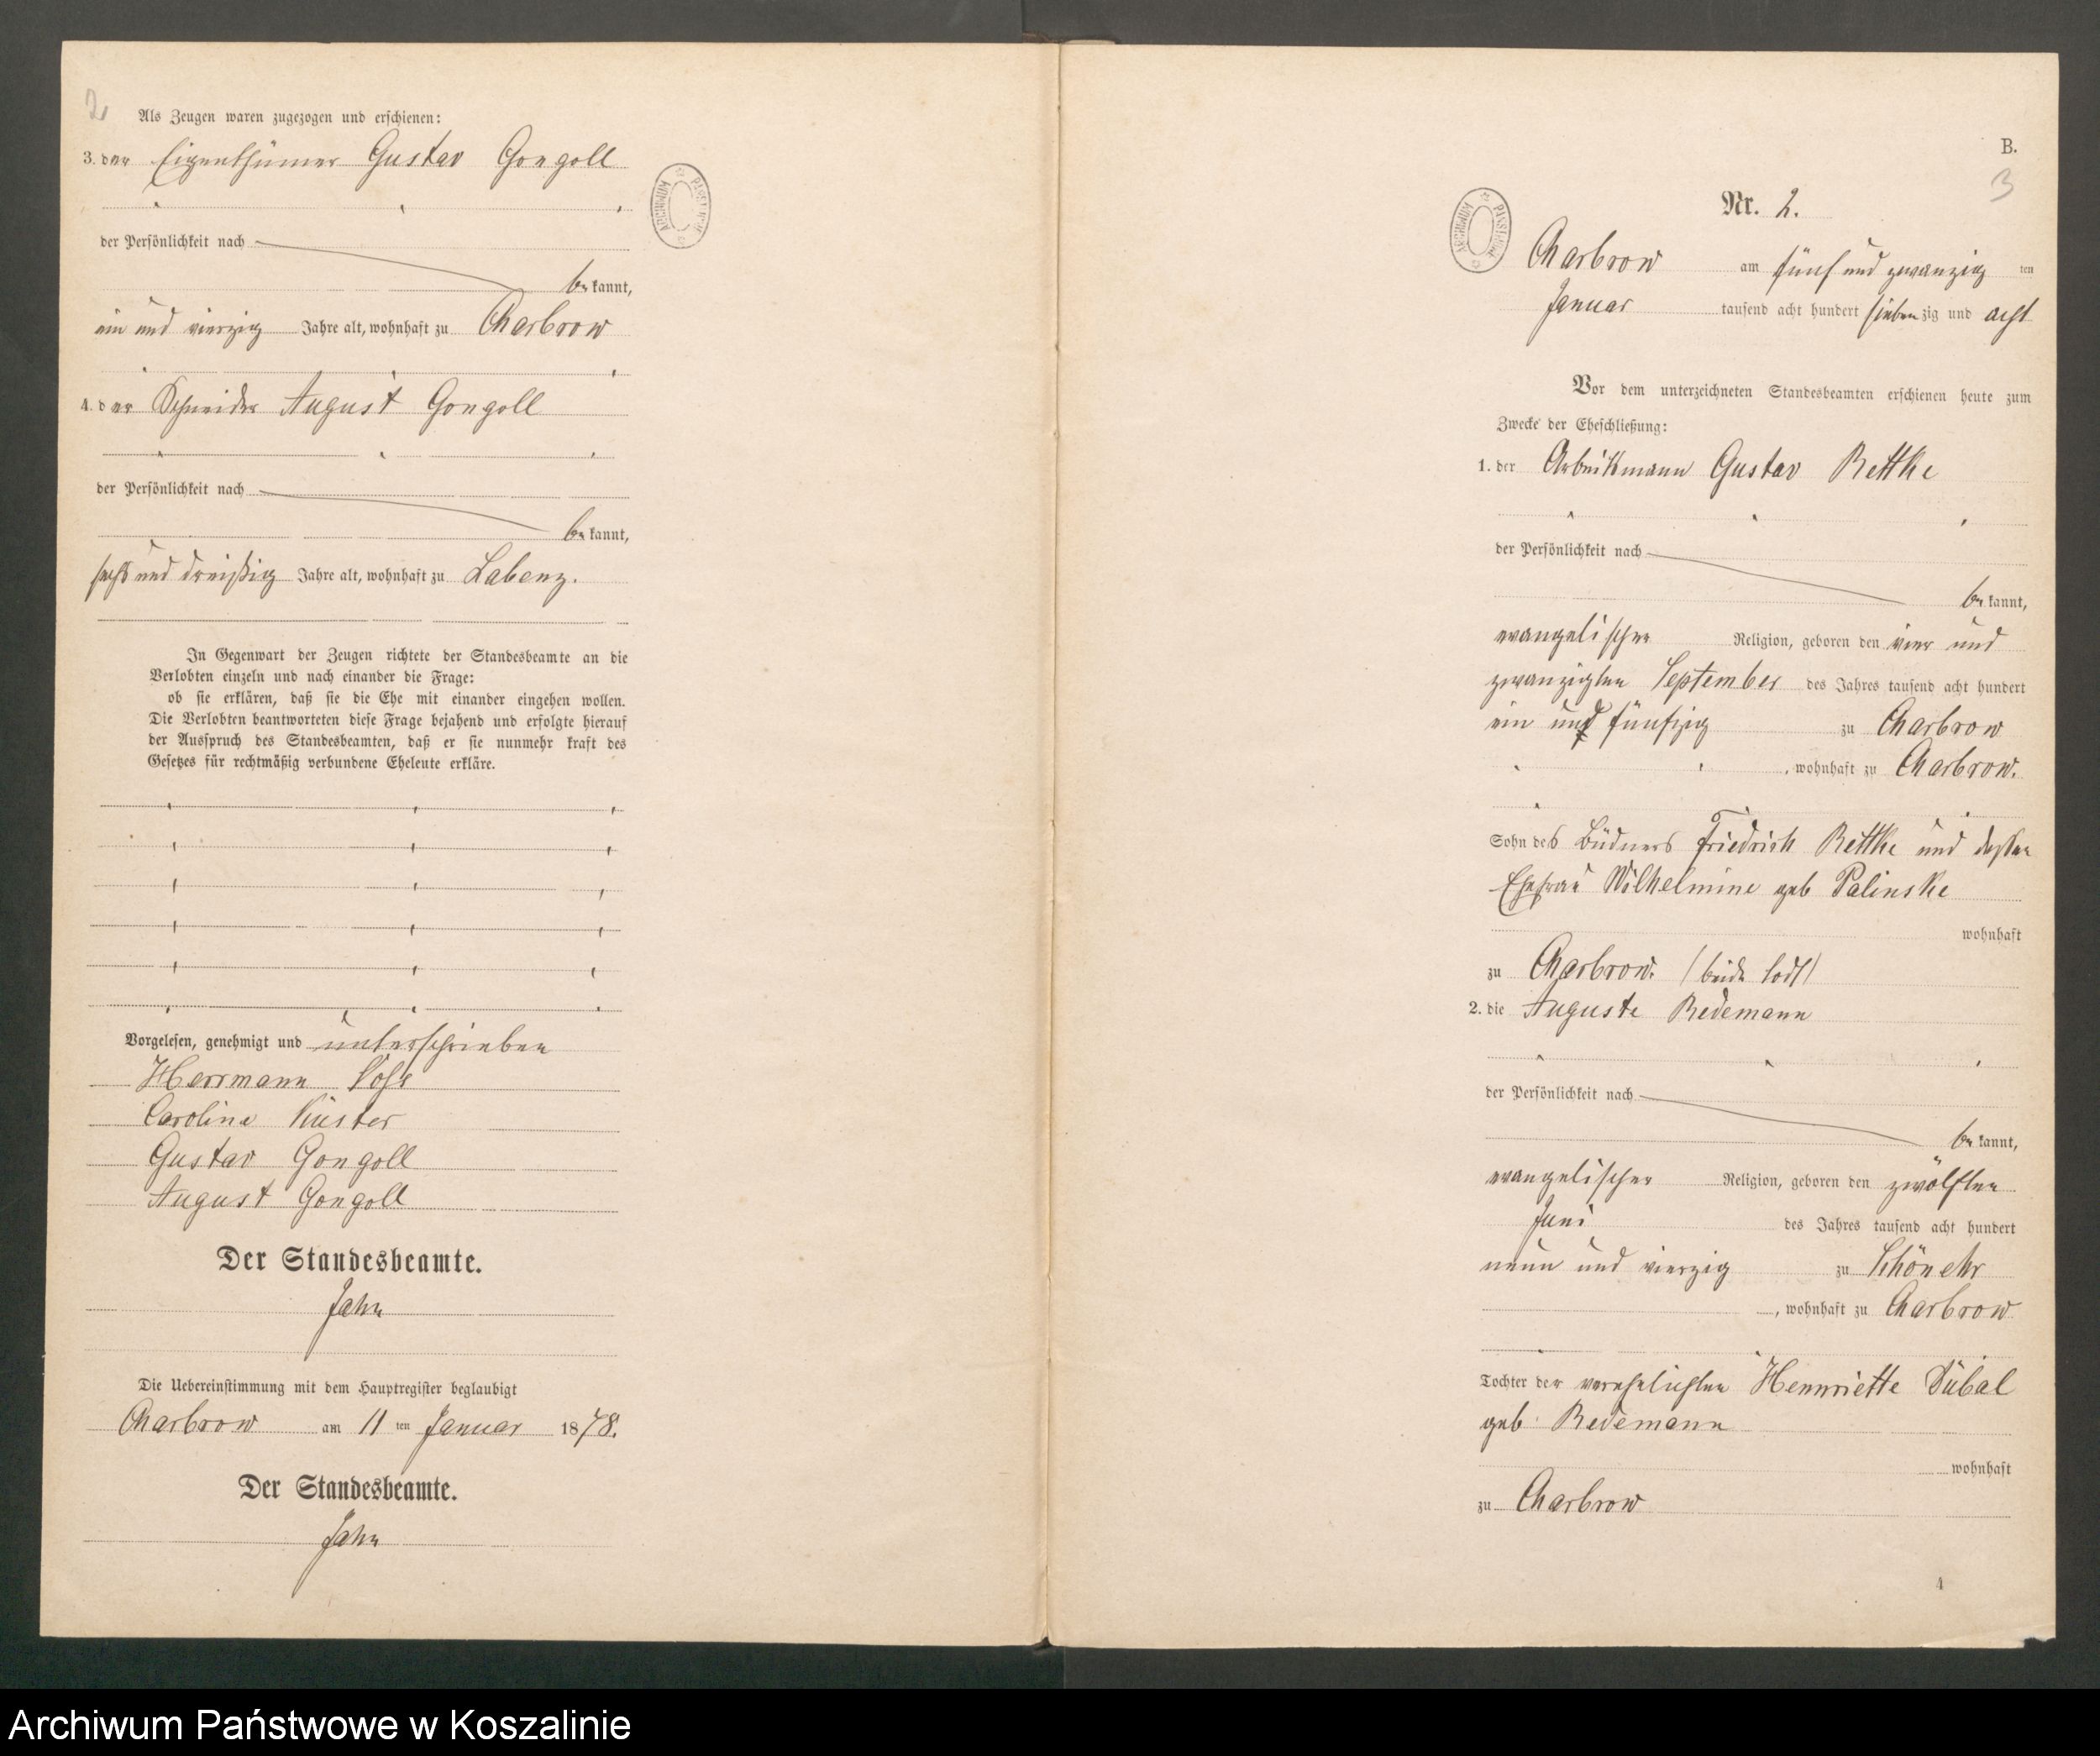 2
Als Zeugen waren zugezogen und erschienen:
3. der Eigenthümer Gustav Gongoll
der Persönlichkeit nach
be kannt,
ein und vierzig Jahre alt, wohnhaft zu Charbrow
4. der Schneider August Gongoll
der Persönlichkeit nach
be kannt,
sechs und dreißig Jahre alt, wohnhaft zu Labenz.
In Gegenwart der Zeugen richtete der Standesbeamte an die
Verlobten einzeln und nach einander die Frage:
ob sie erklären, daß sie die Ehe mit einander eingehen wollen.
Die Verlobten beantworteten diese Frage bejahend und erfolgte hierauf
der Ausspruch des Standesbeamten, daß er sie nunmehr kraft des
Gesetzes für rechtmäßig verbundene Eheleute erkläre.
Vorgelesen, genehmigt und unterschrieben
Herrmann Voss
Caroline Küster
Gustav Gongoll
August Gongoll
Der Standesbeamte.
Jahn
Die Uebereinstimmung mit dem Hauptregister beglaubigt
Charbrow am 11 ten Januar 1878.
Der Standesbeamte.
Jahn
ARCHIWUM PAŃSTWOWE
B.
3
Nr. 2.
ARCHIWUM PAŃSTWOWE
Charbrow am fünf und zwanzig ten
Januar tausend acht hundert sieben zig und acht
Vor dem unterzeichneten Standesbeamten erschienen heute zum
Zwecke der Eheschließung:
1. der Arbeitsmann Gustav Rettke
der Persönlichkeit nach
be kannt,
evangelischer Religion, geboren den vier und
zwanzigsten September des Jahres tausend acht hundert
ein und fünfzig zu Charbrow
, wohnhaft zu Charbrow.
Sohn des Büdners Friedrich Rettke und dessen
Ehefrau Wilhelmine geb Palinske
wohnhaft
zu Charbrow. (beide todt)
2. die Auguste Redemann
der Persönlichkeit nach
be kannt,
evangelischer Religion, geboren den zwölften
Juni des Jahres tausend acht hundert
neun und vierzig zu Schönehr
, wohnhaft zu Charbrow
Tochter der verehelichten Hennriette Dübal
geb. Redemann
wohnhaft
zu Charbrow
4
Archiwum Państwowe w Koszalinie